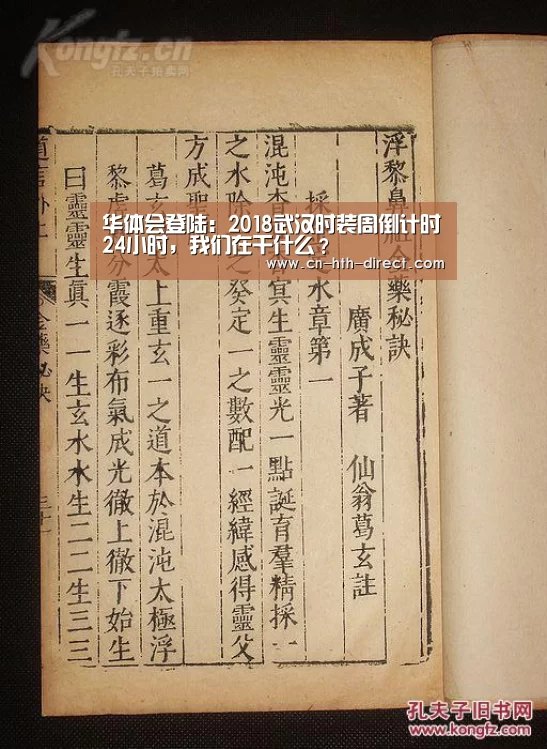 Kongfz.cn
孔夫子拍卖网
浮黎鼻祖金藥秘訣
廣成子著 仙翁葛玄註
採 之水章第一
混沌杳 冥生靈靈光一點誕育羣精採一
之水 之癸定一之數配一經緯感得靈父
方成聖
葛玄 太上重玄一之道本於混沌太極浮
黎虛 分霞逐彩布氣成光徹上徹下始生
曰靈靈生真一一生玄水水生二二生三三
道言外
金藥秘訣
三十一
华体会登陆：2018武汉时装周倒计时
24小时，我们在干什么？
www.cn-hth-direct.com
孔夫子旧书网
KONGFZ.COM